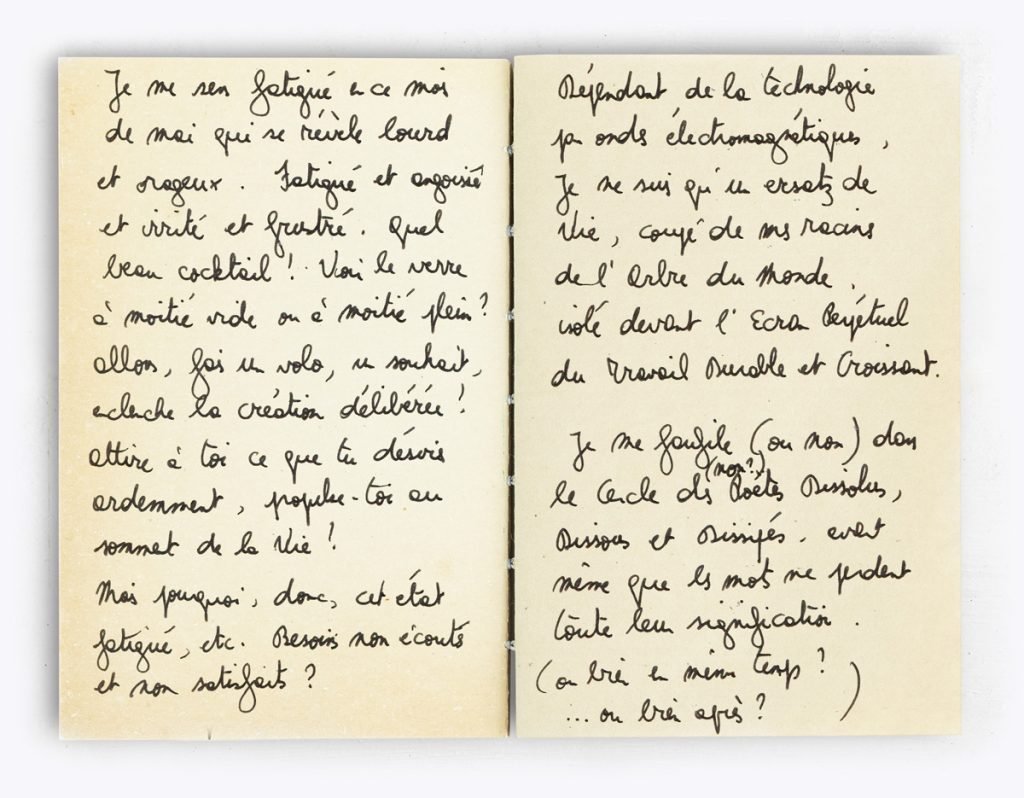 Je me sens fatigué en ce mois
de mai qui se révèle lourd
et orageux. Fatigué et angoissé
et irrité et frustré. Quel
beau cocktail ! Voir le verre
à moitié vide ou à moitié plein ?
allons, fais un volo, un souhait,
enclenche la création délibérée !
attire à toi ce que tu désires
ardemment, propulse-toi au
sommet de la Vie !
Mais pourquoi, donc, cet état
fatigué, etc. Besoins non écoutés
et non satisfaits ?
Dépendant de la technologie
par ondes électromagnétiques,
Je ne suis qu'un ersatz de
Vie, coupé de mes racines
de l'Arbre du Monde,
isolé devant l'Ecran Perpétuel
du Travail Durable et Croissant.
Je me faufile (ou non) dans
(non?)
le Cercle des Poètes Dissolus,
Dissous et Dissipés. avant
même que les mots ne perdent
toute leur signification.
(ou bien en même temps ?
... ou bien après ? )